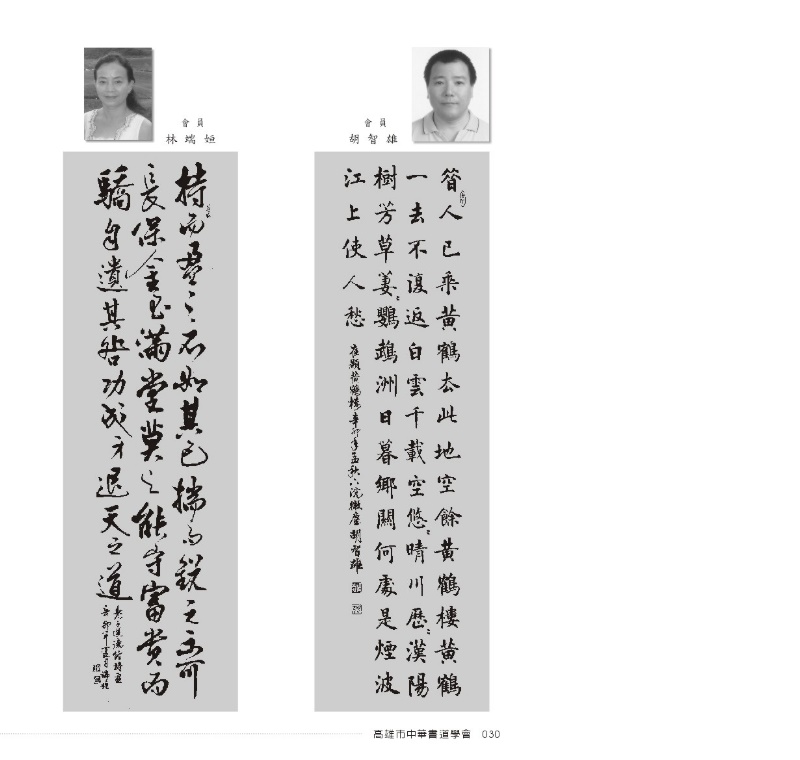 會員
胡智雄
昔人已乘黃鶴去此地空餘黃鶴樓黃鶴
一去不復返白雲千載空悠〻晴川歷〻漢陽
樹芳草萋〻鸚鵡洲日暮鄉關何處是煙波
江上使人愁
崔顥黃鶴樓辛卯年孟秋 胡智雄
會員
林瑞姮
持而盈之不如其已揣而銳之不可
長保金玉滿堂莫之能守富貴而
驕自遺其咎功成身退天之道
高雄市中華書道學會 030